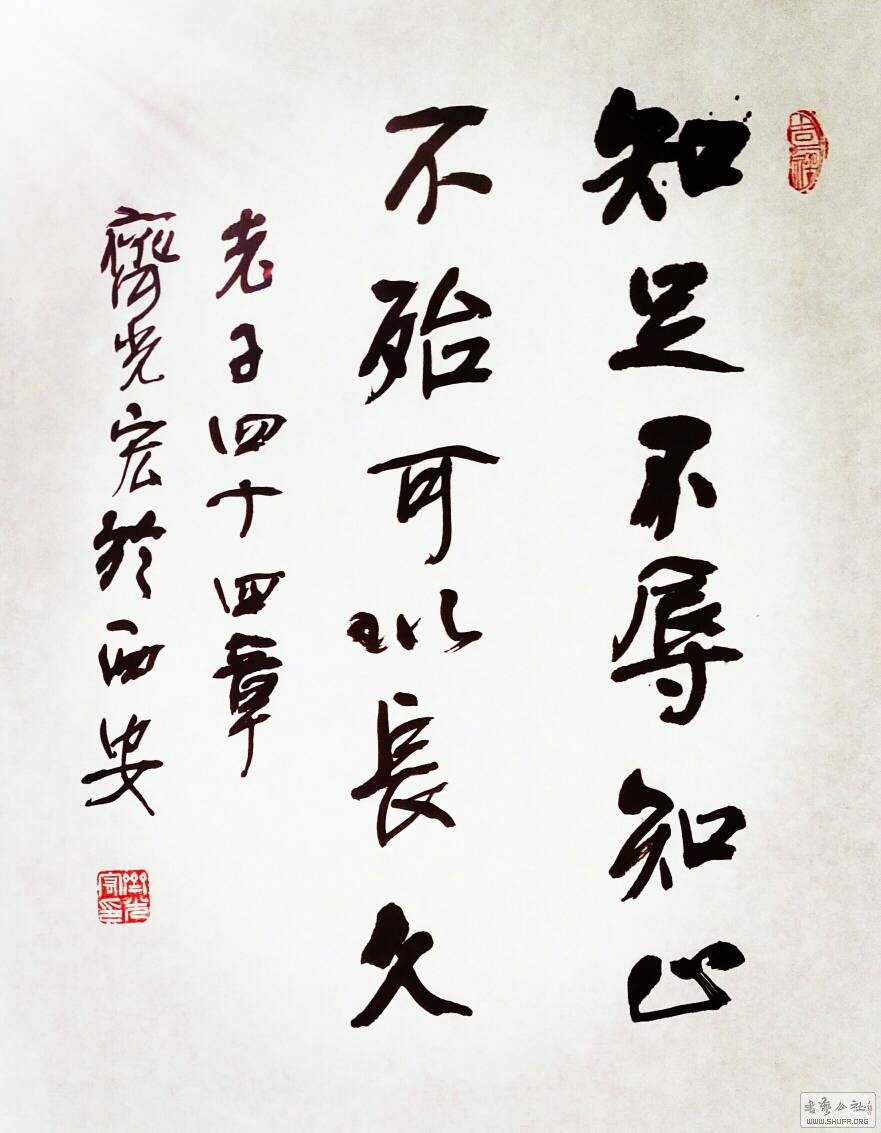 知足不辱知止
不殆可以長久
老子四十四章
齊光宏於西安
吉祥
書藝公社
WWW.SHUFA.ORG